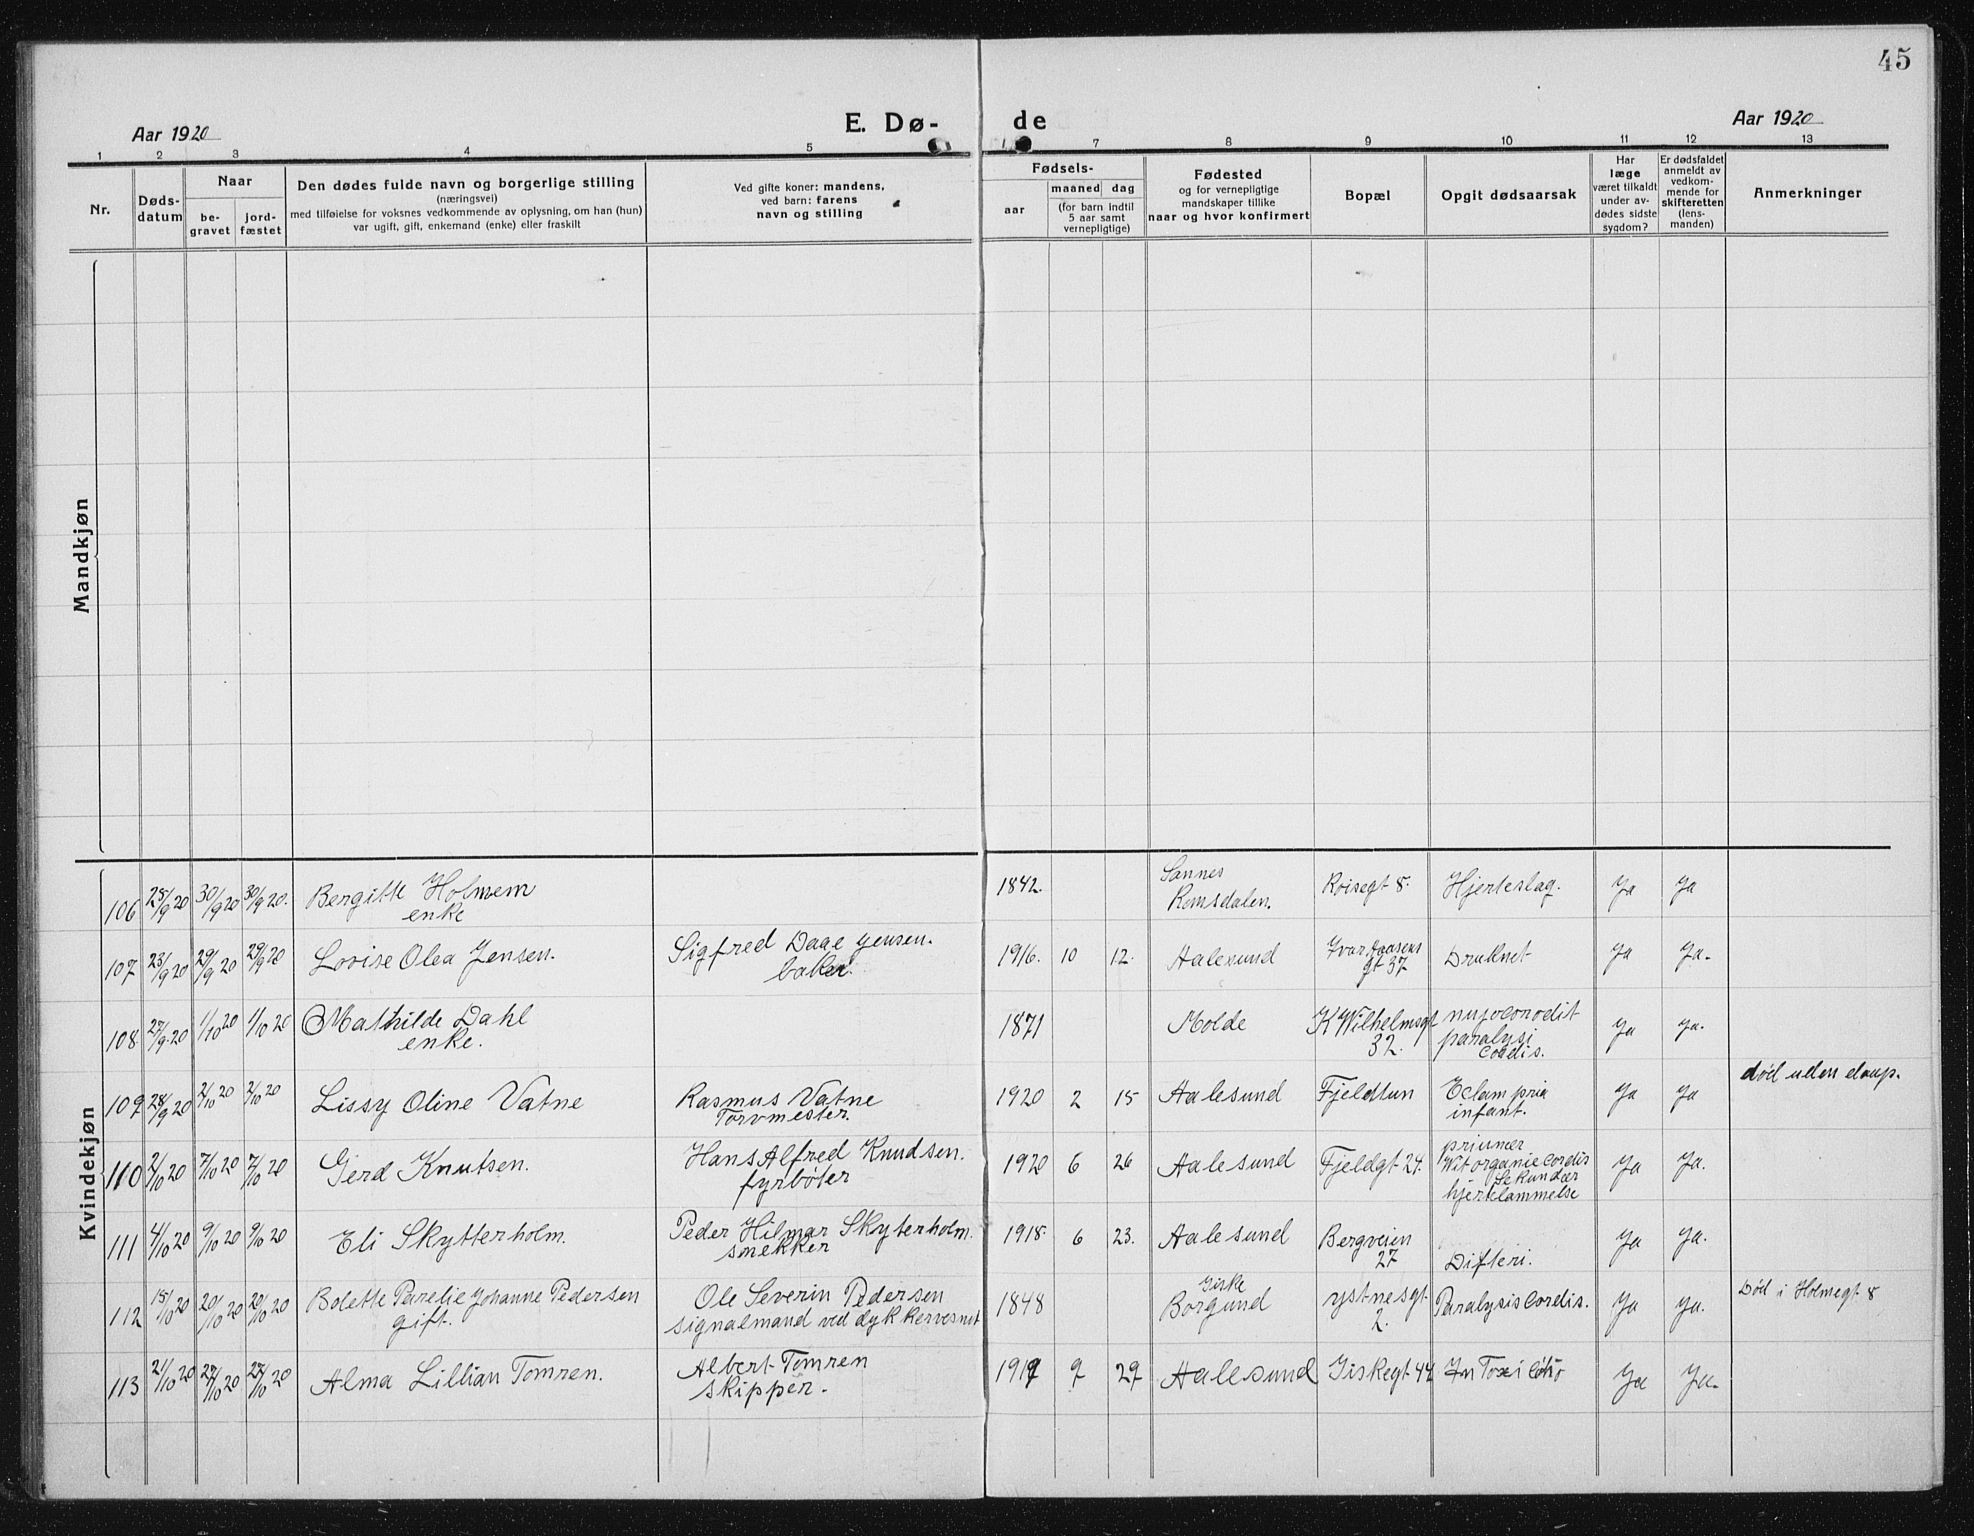 45
Aar 1920
E. Dø-
de
Aar 1920
1 2 3 4 5 7 8 9 10 11 12 13
Nr.
Døds-
datum
Naar
be-
gravet
jord-
fæstet
Den dødes fulde navn og borgerlige stilling
(næringsvei)
med tilføielse for voksnes vedkommende av oplysning, om han (hun)
var ugift, gift, enkemand (enke) eller fraskilt
Ved gifte koner: mandens,
ved barn: farens
navn og stilling
Fødsels-
aar
maaned dag
(for barn indtil
5 aar samt
vernepligtige)
Fødested
og for vernepligtige
mandskaper tillike
naar og hvor konfirmert
Bopæl
Opgit dødsaarsak
Har
læge
været tilkaldt
under av-
dødes sidste
sygdom?
Er dødsfaldet
anmeldt av
vedkom-
mende for
skifteretten
(lens-
manden)
Anmerkninger
Mandkjøn
Kvindekjøn
106 25/9 20 30/9 20 30/9 20. Bergitte Holmem
enke
1842. Sannes
Romsdalen. Roisegt 8. Hjerteslag. Ja Ja
107 23/9 20 29/9 20 29/9 20 Lovise Olea Jensen.
Sigfred Daae Jensen.
baker.
1916. 10 12. Aalesund Ivar Aasens
gt 37 Druknet Ja Ja.
108 27/9 20 1/10 20 1/10 20 Mathilde Dahl
enke.
1871 Molde K Wilhelmsgt
32.
paralysi
cordis. Ja Ja.
109 28/9 20 2/10 20 2/10 20 Lissy Oline Vatne
Rasmus Vatne
Torvmester.
1920 2 15 Aalesund Fjeldtun Eclampria
infant. Ja Ja død uden daap.
110 2/10 20 7/10 20 7/10 20 Gerd Knutsen.
Hans Alfred Knudsen.
fyrbøter
1920 6 26 Aalesund Fjeldgt 24. primær
Wit organie cordis
Sekundær
hjertelammelse Ja Ja.
111 4/10 20 9/10 20 9/10 20 Eli Skytterholm.
Peder Hilmar Skyterholm.
snekker
1918. 6 23. Aalesund Bergveien
27 Difteri. Ja Ja.
112 15/10 20 20/10 20 20/10 20 Bolette Parelie Johanne Pedersen
gift.
Ole Severin Pedersen
signalmand ved dykkervesnet
1848 Giske
Borgund ystnesgt
2. Paralysis Cordis. Ja Ja. Død i Holmegt 8
113 21/10 20 27/10 20 27/10 20 Alma Lillian Tomren.
Albert Tomren
skipper.
1919 9 29 Aalesund Giskegt 44 Ja Ja.